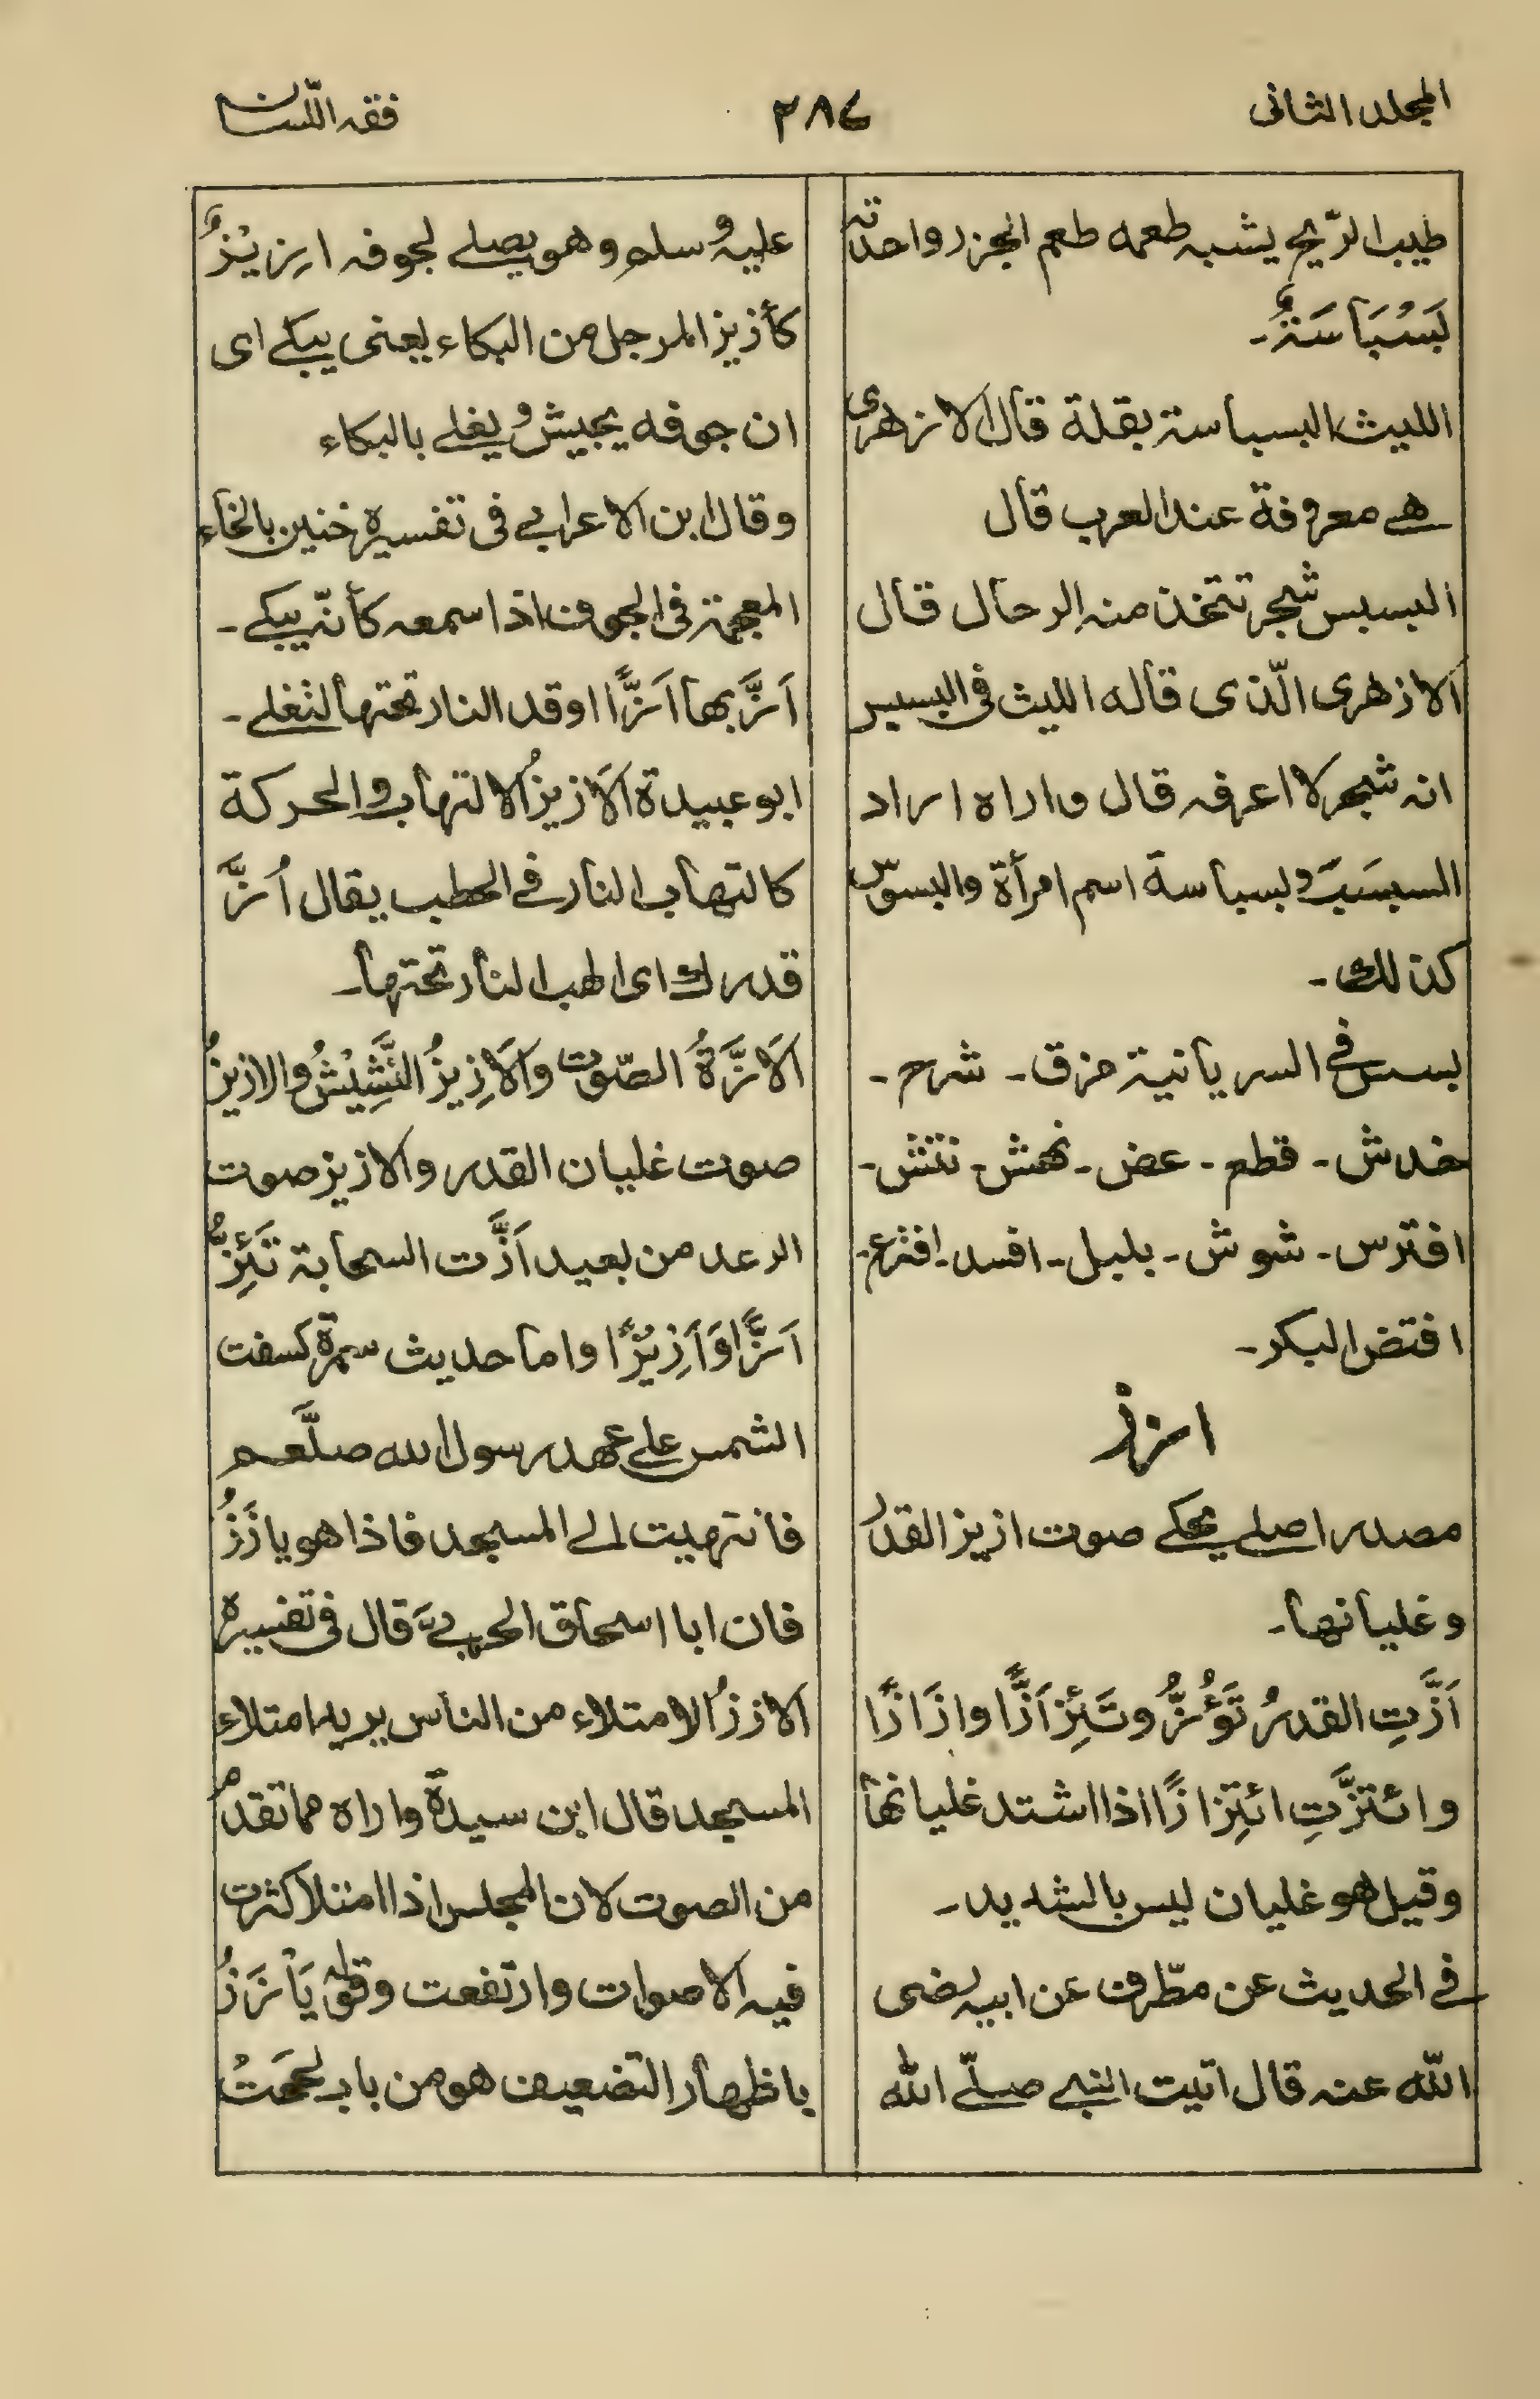 المجلد الثانى
٣٨٤
فقه اللّسان
طيب الرّيح يشبه طعمه طعم الجزر واحدته
بَسْبَاسَةٌ۔
الليث البسباسة بقلة قال الازهرى
هے معروفة عند العرب قال
البسبس شجر تتخذ منه الرحال قال
الازهرى الّذى قاله الليث فى البسبس
انه شجر لا اعرفه قال واراه اراد
السبسَبَ وبسباسة اسم امرأة والبسوّس
كذلك۔
بسس فے السريانية مزق۔ شرم۔
خدش۔ قطع۔ عض۔ نهش۔ نتش۔
افترس۔ شوش۔ بلبل۔ افسد۔ افترع۔
افتض البكر۔
ا ز ز
مصدر اصلے يحكے صوت ازيز القدر
وغليانها۔
اَزَّتِ القدرُ تَؤُزُّ وتَئِزّ اَزًّا وازَازًا
وائتزَّتِ ائتِزازًا اذا اشتد غليانها
وقيل هو غليان ليس بالشديد۔
فے الحديث عن مطّرف عن ابيه رضى
الله عنه قال اتيت النبے صلّے الله
عليه وسلم وهو يصلے لجوفه ازيزٌ
كأزيز المرجل من البكاء يعنى يبكے اى
ان جوفه يجيش ويغلے بالبكاء
وقال ابن الاعرابے فى تفسيره خنين بالخاء
المعجمة فى الجوف اذا سمعه كأنّه يبكے۔
اَزَّ بها اَزًّا اوقد النار تحتها لتغلے۔
ابو عبيدة الاَزيزُ الالتهاب والحركة
كالتهاب النار فے الحطب يقال اُزَّ
قدرك اى الهب النار تحتها۔
اَلاَزَّةُ الصّوت واَلاَزِيزُ النَّشِيْشُ والازيزُ
صوت غليان القدر والازيز صوت
الرعد من بعيد اَزَّت السحابة تَئِزُّ
اَزًّا وَاَزِيْزًا واما حديث سمرة كسفت
الشمس علے عهد رسول الله صلّعم
فانتهيت الے المسجد فاذا هو يازَزُ
فان ابا اسحاق الحربےَّ قال فى تفسيره
الازز الامتلاء من الناس يريد امتلاء
المسجد قال ابن سيدة واراه مما تقدم
من الصوت لان المجلس اذا امتلا كثرت
فيه الاصوات وارتفعت وقوله يَأْزَزُ
باظهار التضعيف هو من باب لححَتْ